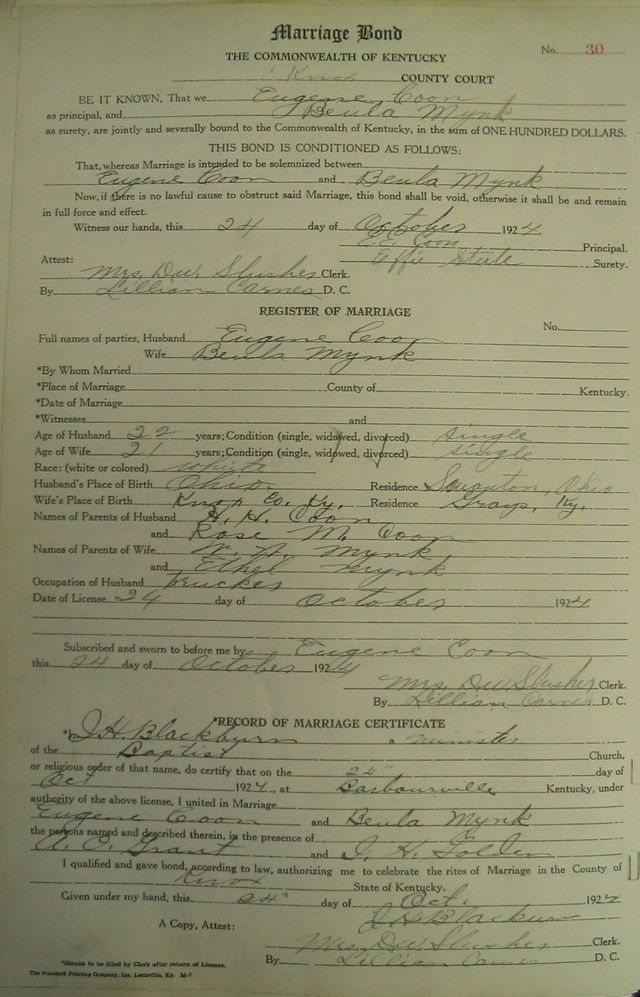 Marriage Bond
No. 30
THE COMMONWEALTH OF KENTUCKY
Knox COUNTY COURT
BE IT KNOWN, That we Eugene Coon
as principal, and Beula Mynk
as surety, are jointly and severally bound to the Commonwealth of Kentucky, in the sum of ONE HUNDRED DOLLARS.
THIS BOND IS CONDITIONED AS FOLLOWS:
That, whereas Marriage is intended to be solemnized between
Eugene Coon and Beula Mynk
Now, if there is no lawful cause to obstruct said Marriage, this bond shall be void, otherwise it shall be and remain
in full force and effect.
Witness our hands, this 24 day of October 1924
E.E. Coon Principal.
Effie Steele Surety.
Attest:
Mrs. D.W. Slusher Clerk.
By Lillian Carnes D. C.
REGISTER OF MARRIAGE
No.
Full names of parties, Husband Eugene Coon
Wife Beula Mynk
*By Whom Married
*Place of Marriage County of Kentucky.
*Date of Marriage
*Witnesses and
Age of Husband 22 years; Condition (single, widowed, divorced) single
Age of Wife 21 years; Condition (single, widowed, divorced) single
Race: (white or colored) white
Husband's Place of Birth Ohio Residence Ohio
Wife's Place of Birth Knox Co. Ky. Residence Grays, Ky.
Names of Parents of Husband H. H. Coon
and Rose M. Coon
Names of Parents of Wife Mynk
and Ethel Mynk
Occupation of Husband Trucker
Date of License 24 day of October 1924
Subscribed and sworn to before me by Eugene Coon
this 24 day of October 1924
Mrs. D.W. Slusher Clerk.
By Lillian Carnes D. C.
*RECORD OF MARRIAGE CERTIFICATE
*I J.H. Blackburn a minister
of the Baptist Church,
or religious order of that name, do certify that on the 24" day of
Oct 1924, at Barbourville Kentucky, under
authority of the above license, I united in Marriage
Eugene Coon and Beula Mynk
the persons named and described therein, in the presence of
Grant and J. H. Golden
I qualified and gave bond, according to law, authorizing me to celebrate the rites of Marriage in the County of
Knox State of Kentucky.
Given under my hand, this 24" day of Oct. 1924
J.H. Blackburn
A Copy, Attest:
Mrs. D.W. Slusher Clerk.
By Lillian Carnes D. C.
*Blanks to be filled by Clerk after return of License.
The Standard Printing Company, Inc. Louisville, Ky. M-7